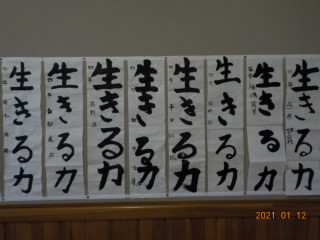 生きる力
生きる力
生きる力
生きる力
生きる力
生きる力
生きる力
生きる力
2021 01 12